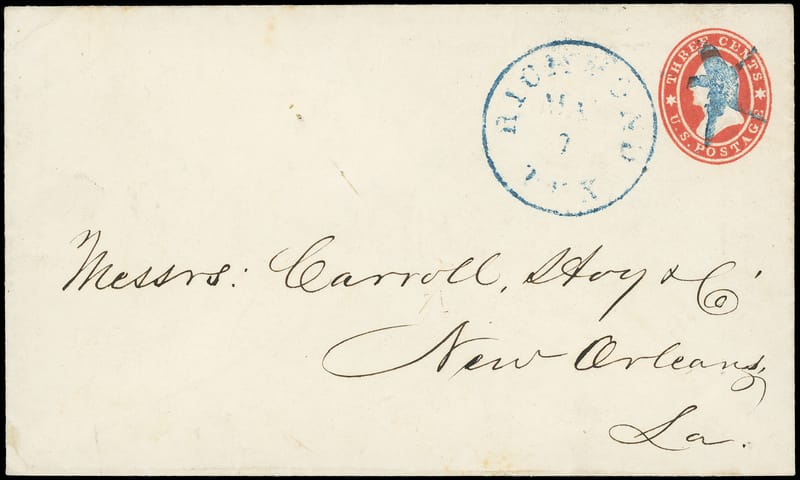 RICHMOND
MA
7
TEX
THREE CENTS
U.S. POSTAGE
Messrs: Carroll, Hoy & Co
New Orleans,
La.